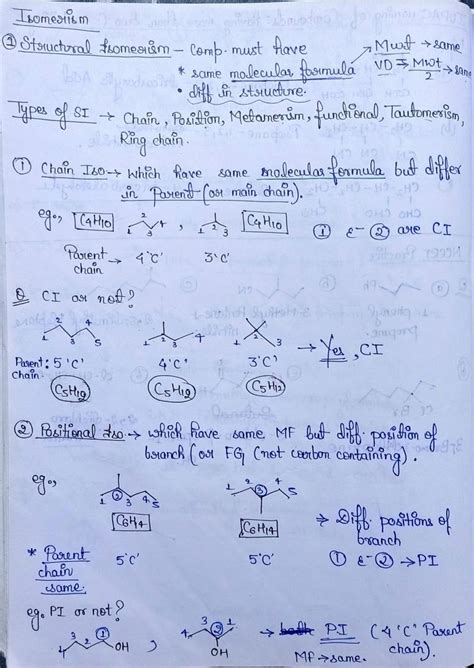 Isomerism
① Structural Isomerism - Comp. must have
* same molecular formula → Mwt → same
VD = Mwt/2 → same
• diff in structure.
Types of SI → Chain, Position, Metamerism, functional, Tautomerism,
Ring chain.
① Chain Iso → which have same molecular formula but differ
in Parent (or main chain).
eg., C4H10 1 2 3 4 , 1 2 3 C4H10 ① & ② are CI
Parent chain → 4 'C' 3 'C'
Q CI or not?
1 2 3 4 5 1 2 3 4 1 2 3 → Yes, CI
Parent chain: 5 'C' 4 'C' 3 'C'
C5H12 C5H12 C5H12
② Positional Iso → which have same MF but diff. position of
branch (or FG (not carbon containing).
eg., 1 2 3 4 5 1 2 3 4 5
C6H14 C6H14 → Diff. positions of
branch
* Parent chain same. 5 'C' 5 'C' ① & ② → PI
eg. PI or not?
4 3 2 1 OH , 4 3 2 1 OH → both PI (4 'C' Parent
chain).
MF → same.